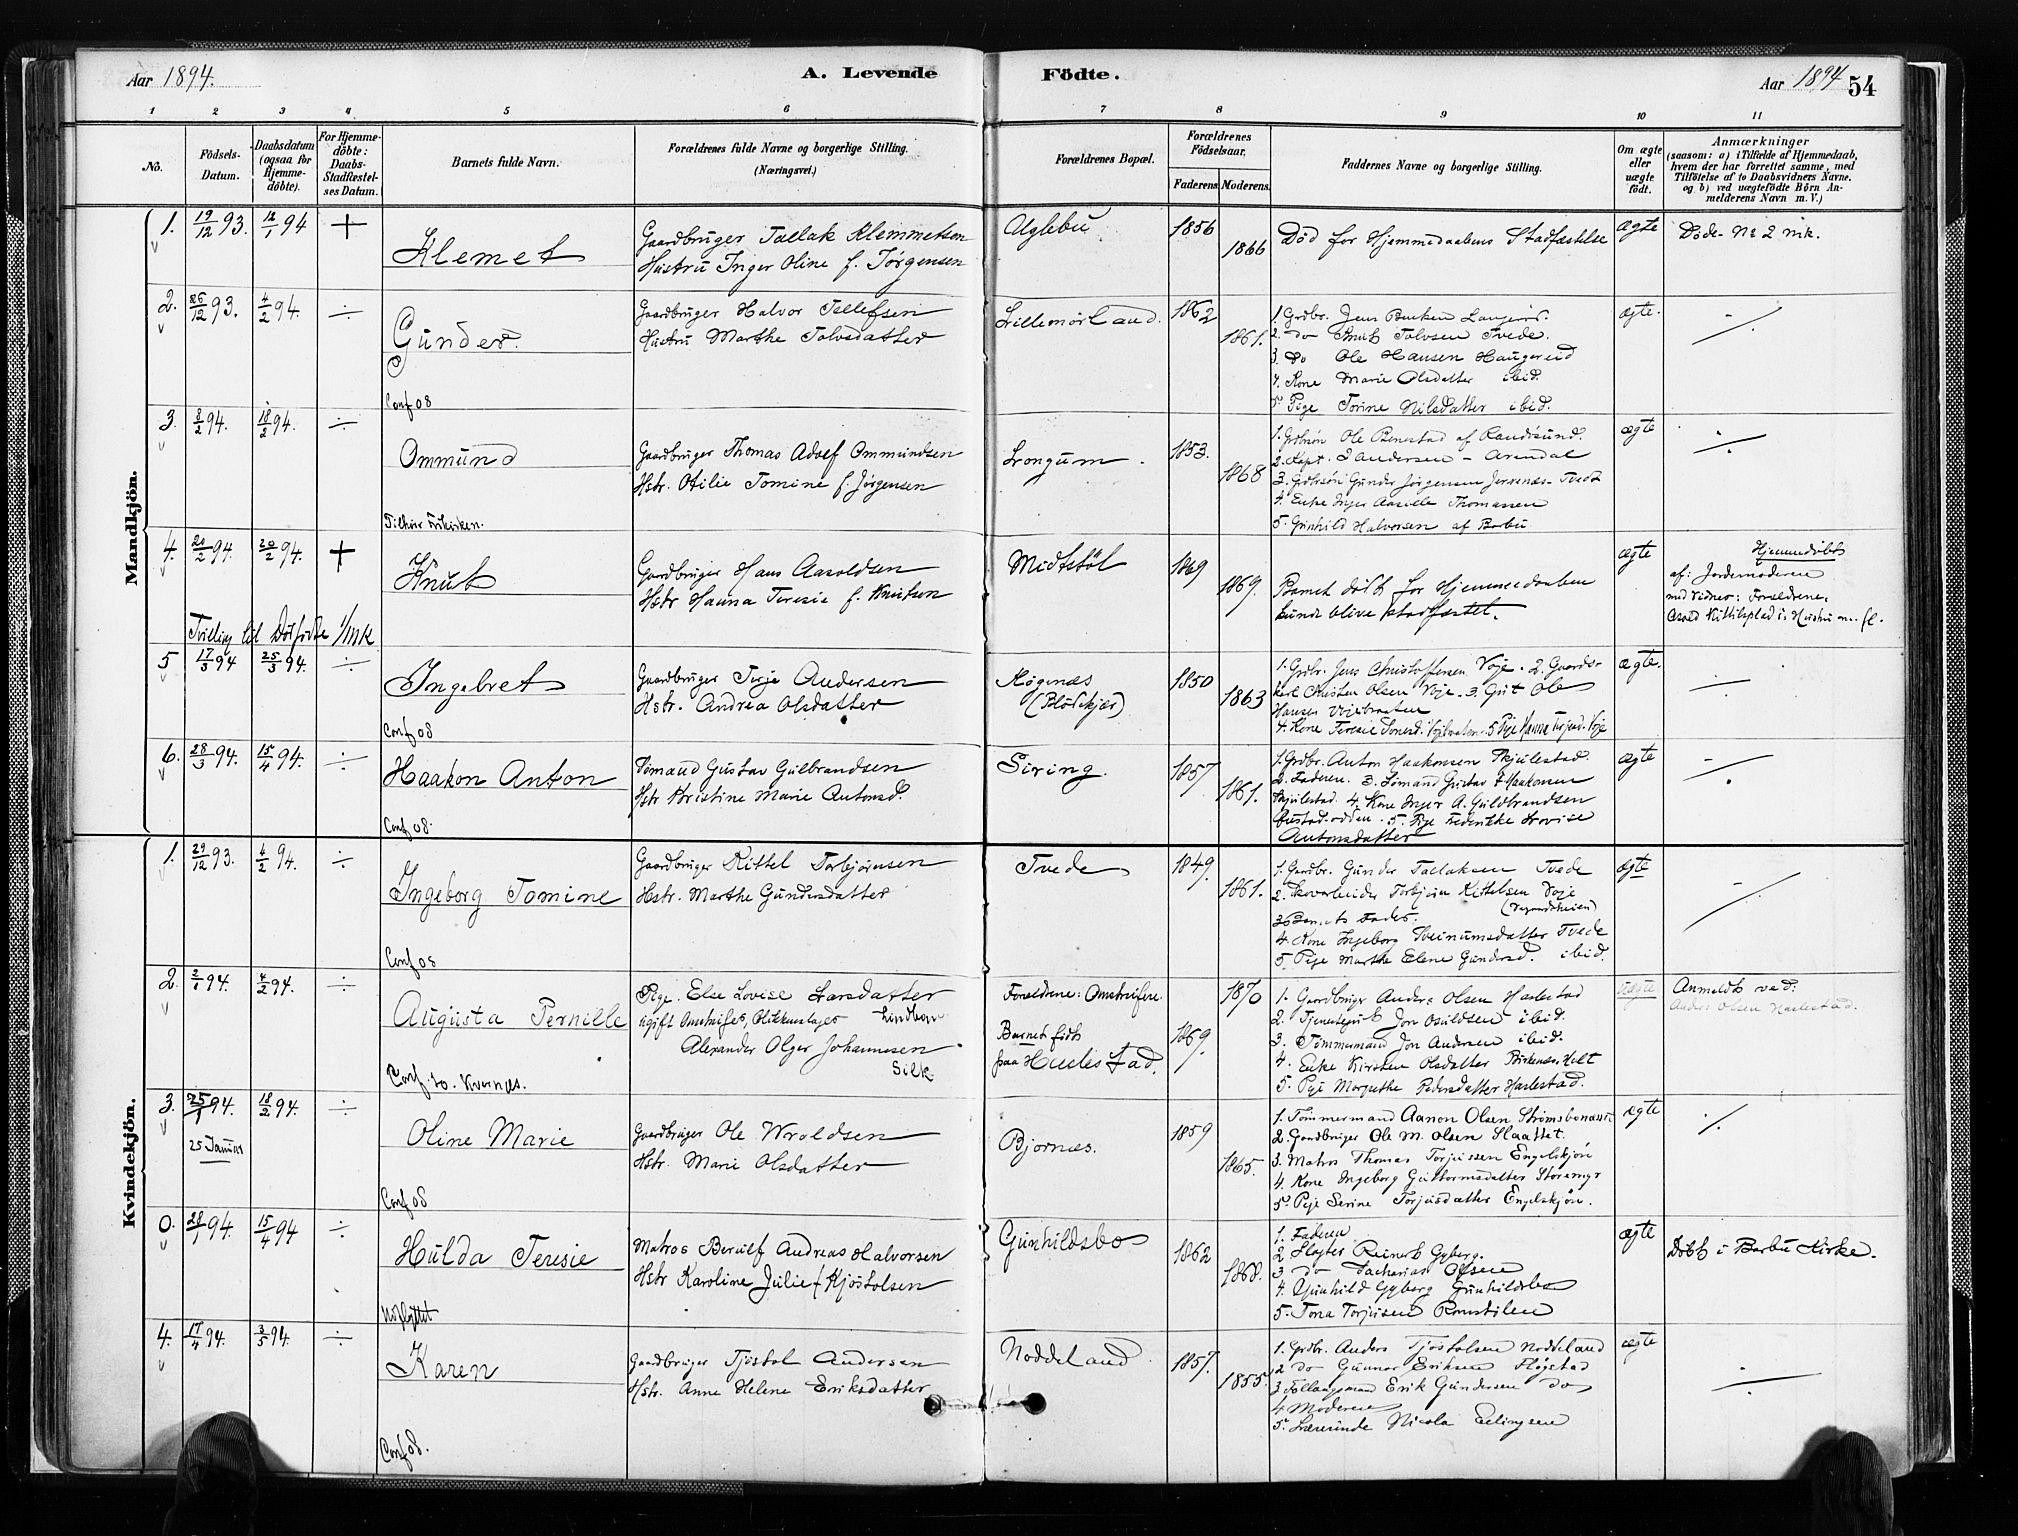 Aar 1894.
A. Levende Födte.
Aar 1894 54
1 2 3 4 5 6 7 8 9 10 11
No.
Födsels-Datum.
Daabsdatum (ogsaa for Hjemmedöbte).
For Hjemmedöbte: Daabs-Stadfæstelses Datum.
Barnets fulde Navn.
Forældrenes fulde Navne og borgerlige Stilling. (Næringsvei.)
Forældrenes Bopæl.
Forældrenes Födselsaar.
Faderens. Moderens.
Faddernes Navne og borgerlige Stilling.
Om ægte eller uægte födt.
Anmærkninger
(saasom: a) i Tilfælde af Hjemmedaab, hvem der har forrettet samme, med Tilföielse af to Daabsvidners Navne. og b) ved uægtefödte Börn Anmelderens Navn m. V.)
Mandkjön.
1. 19/12 93. 12/1 94 +
Klemet
Gaardbruger Tallak Klemmetsen
Hustru Inger Oline f. Jørgensen
Uglebu 1856 1866
Død før Hjemmedaabens Stadfæstelse
ægte
Døde No 2 mk.
2. 26/12 93. 4/2 94. ÷
Gunder
Conf 08
Gaardbruger Halvor Tellefsen
Hustru Marthe Tolvsdatter
Lillemørland. 1862 1861.
2. do Knut Tolvsen Tvede.
3. do Ole Hansen Haugereid
4. Kone Marie Olsdatter ibid.
5. Pige Torine Nilsdatter ibid.
ægte.
3. 8/2 94. 18/2 94. ÷
Ommund
Tilhører Frikirken.
Gaardbruger Thomas Adolf Ommundsen
Hstr. Otilie Tomine f. Jørgensen
Longum. 1853. 1868
1. Grdbrsøn Ole Benestad af Randøsund.
2. Kapt. J Andersen – Arendal
4. Enke Inger Aasille Thomassen
5. Gunhild Halvorsen af Barbu
ægte
4. 20/2 94. 20/2 94. +
Knut
Gaardbruger Hans Aasoldsen
Hstr Hanna Teresie f. Knutsen
Tvilling til Dødfødte 1/mk
Midtstøl 1869 1869.
Barnet død før Hjemmedaaben
kunde blive stadfæstet.
ægte
Hjemmedøbt
af: Jordemoderen
med Vidner: Forældrene,
5 17/3 94 25/3 94. ÷
Ingebret
Conf 08
Gaardbruger Terje Andersen
Hstr. Andrea Olsdatter
Høgenæs
(Blødekjær)
1850 1863
1. Grdbr. Jens Christoffersen Voje. 2. Gaards-
karl Christen Olsen Voje. 3. Gut Ole
Hansen Vojebraaten
ægte.
6. 28/3 94. 15/4 94. ÷
Haakon Anton
Conf 08.
Sømand Gustav Gulbrandsen
Hstr Kristine Marie Antonsd.
Siring. 1857 1861.
1. Grdbr. Anton Haakonsen Skjulestad.
2. Faderen. 3. Sømand Gustav F Haakonsen
Skjulestad. 4. Kone Inger A. Guldbrandsen
5. Pige Fredrikke Lovise
Antonsdatter
ægte
Kvindekjön.
1. 29/12 93. 4/2 94. ÷
Ingeborg Tomine
Conf 08
Gaardbruger Kittel Torbjørnsen
Hstr. Marthe Gundersdatter
Tvede 1849. 1861.
1. Gardbr. Gunder Tallaksen Tvede
2. Skovarbeider Torbjørn Kittelsen Voje
3. Barnets Fader.
4. Kone Ingeborg Sveinumsdatter Tvede
5. Pige Marthe Elene Gundersd. ibid.
ægte
2. 2/1 94. 4/2 94. ÷
Augusta Pernille
Conf. 10. Kvernæs.
Pige. Else Lovise Larsdatter
ugift Omstreifer, Blikkenslager Lindbom
Alexander Olger Johannesen
Silk
Forældrene: Omstreifere.
Barnet født
paa Haslestad.
1870 1869.
1. Gaardbruger Anders Olsen Haslestad
2. Tjenestegut Jon Osuldsen ibid.
3. Tømmermand Jon Andersen ibid.
4. Enke Kirsten Olsdatter Birkenæs Helt
5. Pige Margrethe Pedersdatter Haslestad.
uægte
Anmeldt ved:
Anders Olsen Haslestad.
3. 25/1 94. 18/2 94. ÷
25 Januar
Oline Marie
Conf 08
Gaardbruger Ole Wroldsen
Hstr. Marie Olsdatter
Bjornæs. 1859 1865.
1. Tømmermand Aanon Olsen Strømsbonæss
2. Gardbruger Ole M. Olsen Slaattet.
3. Matros Thomas Terjussen Engelskjøn
4. Kone Ingeborg Guttormsdatter Storemyr
5. Pige Serine Torjusdatter Engelskjøn.
ægte
0. 28/1 94. 15/4 94 ÷
Hulda Teresie
Matros Berulf Andreas Halvorsen
Hstr Karoline Julie f Kjøstolsen
Gunhildsbo 1862 1868.
1. Faderen
2. Slagter Reinert Gyberg.
3. do Zacharias Olsen
4. Gunhild Gyberg Gunhildsbo
5. Tona Torjusen Romstølen
ægte
Døbt i Barbu Kirke.
4. 17/4 94. 3/5 94. ÷
Karen
Conf 08.
Gaardbruger Tjøstol Andersen
Hstr. Anne Helene Eriksdatter
Noddeland 1857. 1855.
1. Grdbr. Anders Tjøstolsen Noddeland
2 do Gunnar Eriksen Fløgstad
Erik Gundersen do
4 Moderen
5. Lærerinde Nicola Eelingsen
ægte